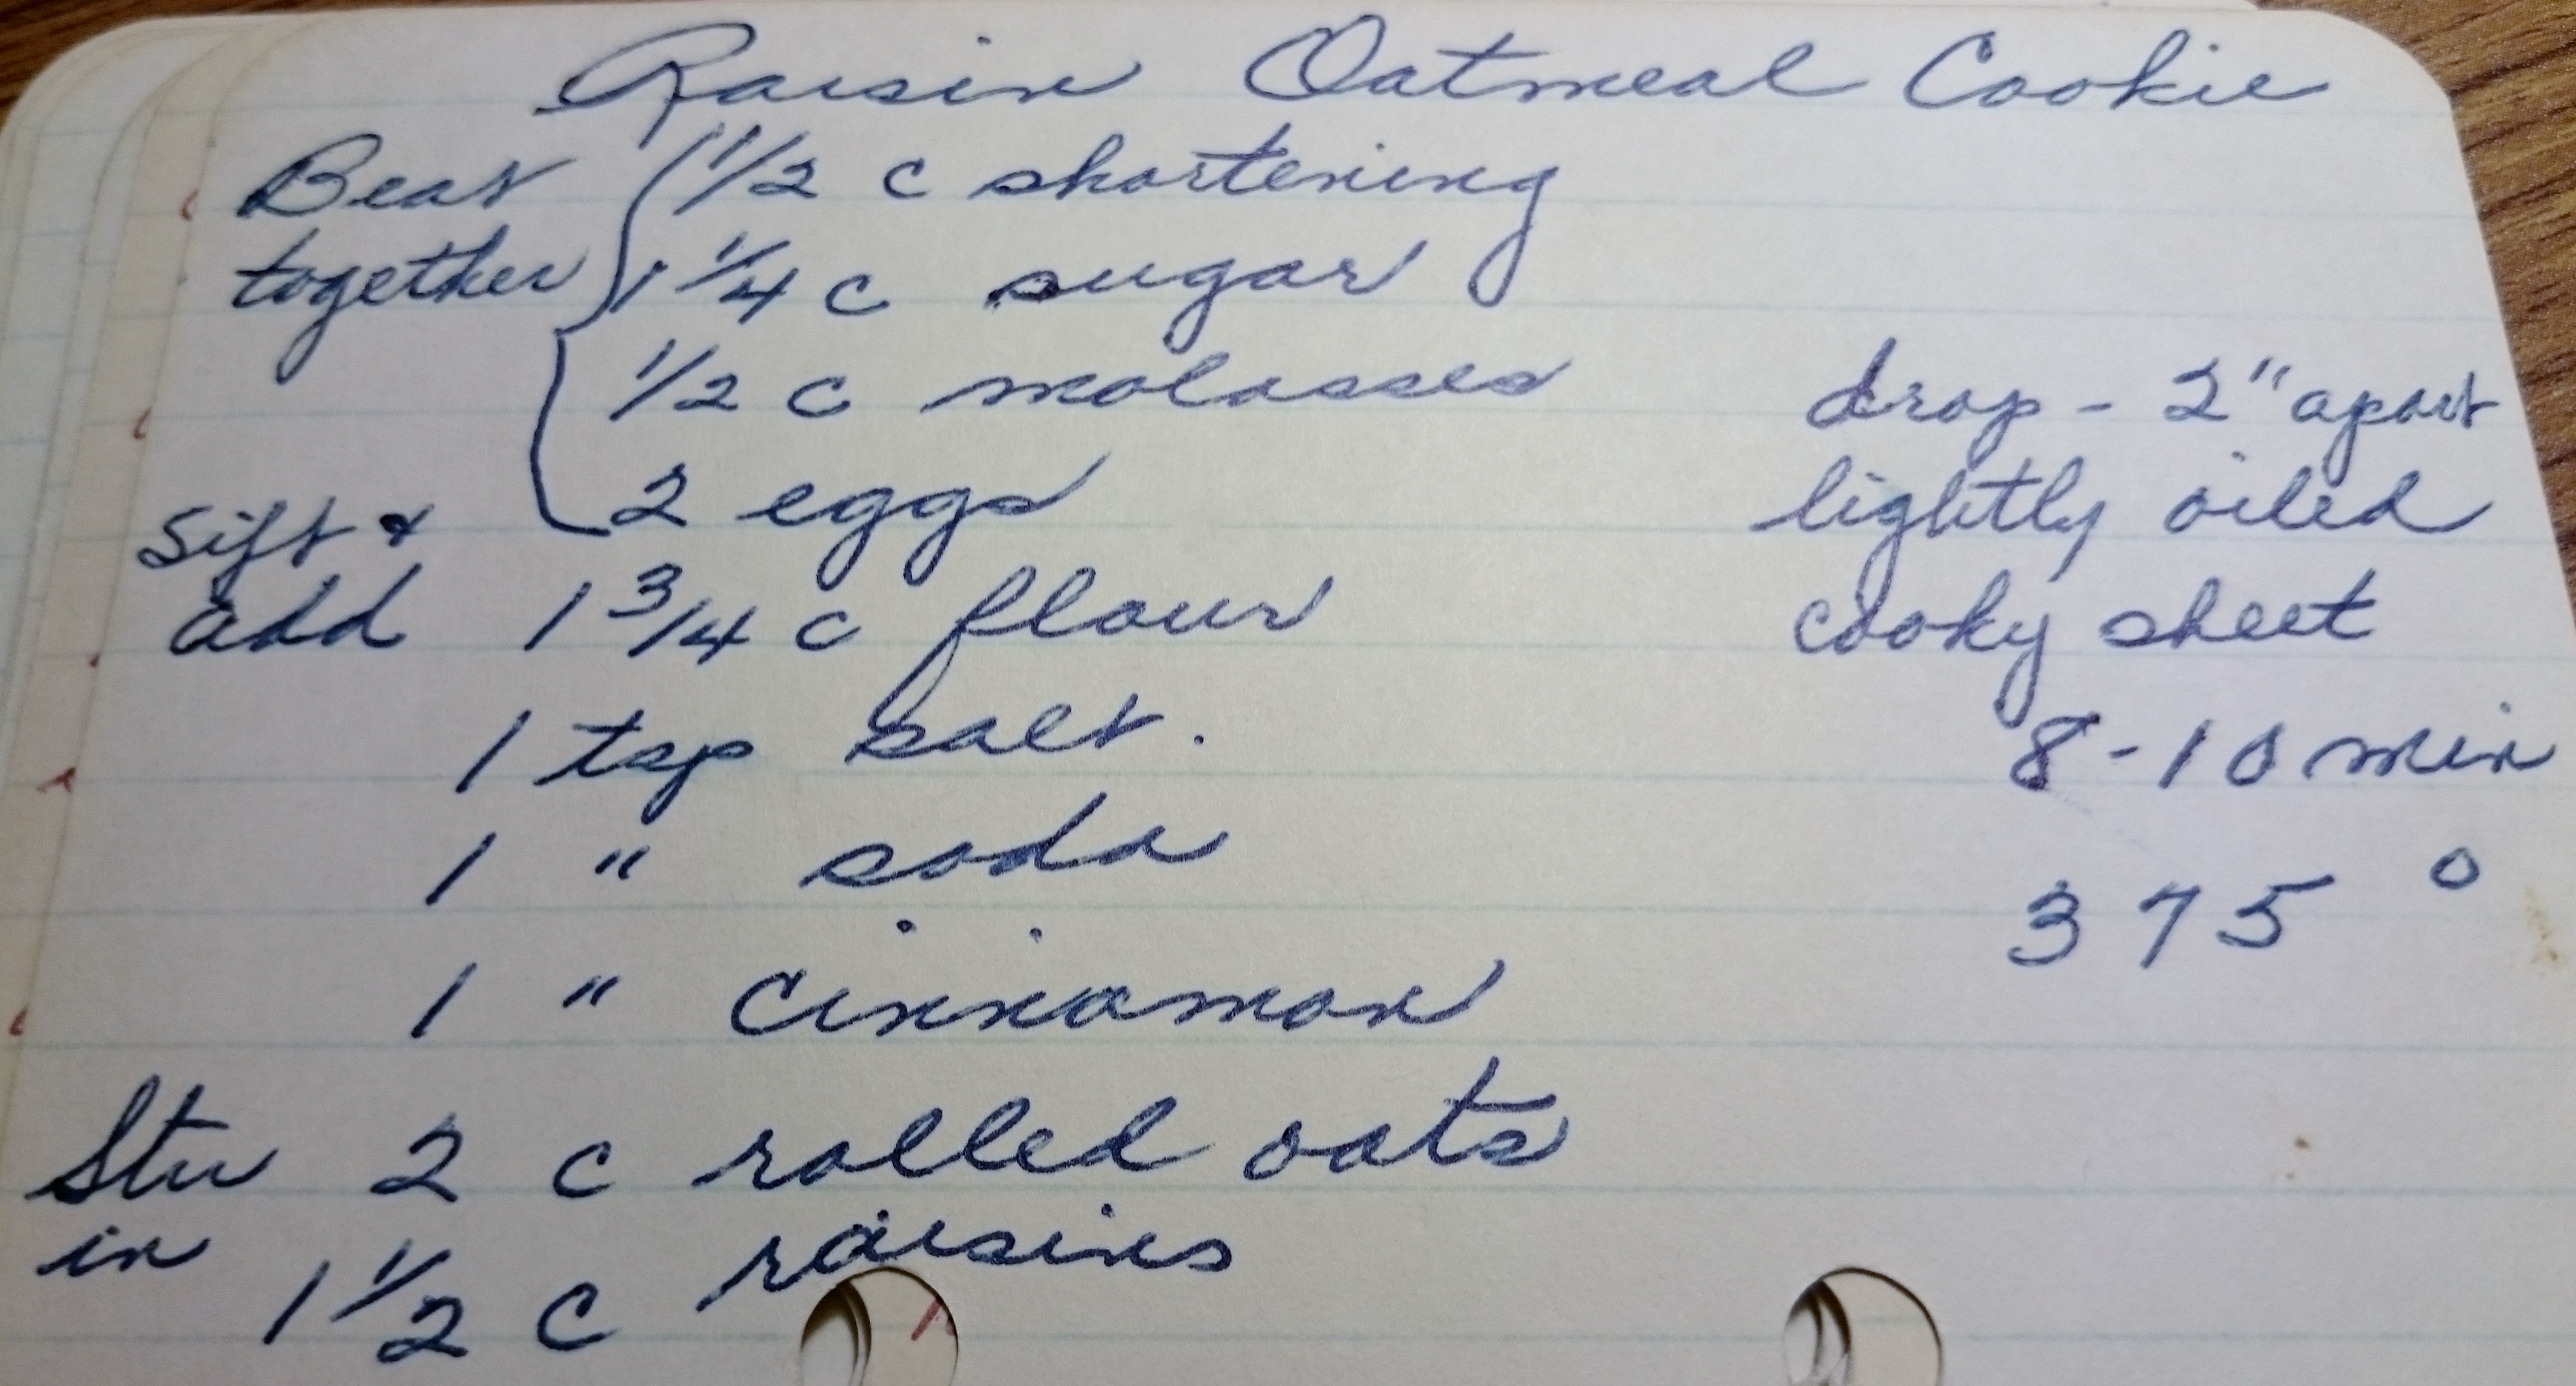 Raisin Oatmeal Cookie
Beat 1/2 c shortening
together 1 1/4 c sugar
1/2 c molasses
2 eggs
Sift &
add 1 3/4 c flour
1 tsp salt.
1 " soda
1 " cinnamon
Stir 2 c rolled oats
in 1 1/2 c raisins
drop - 2" apart
lightly oiled
cooky sheet
8-10 min
375°